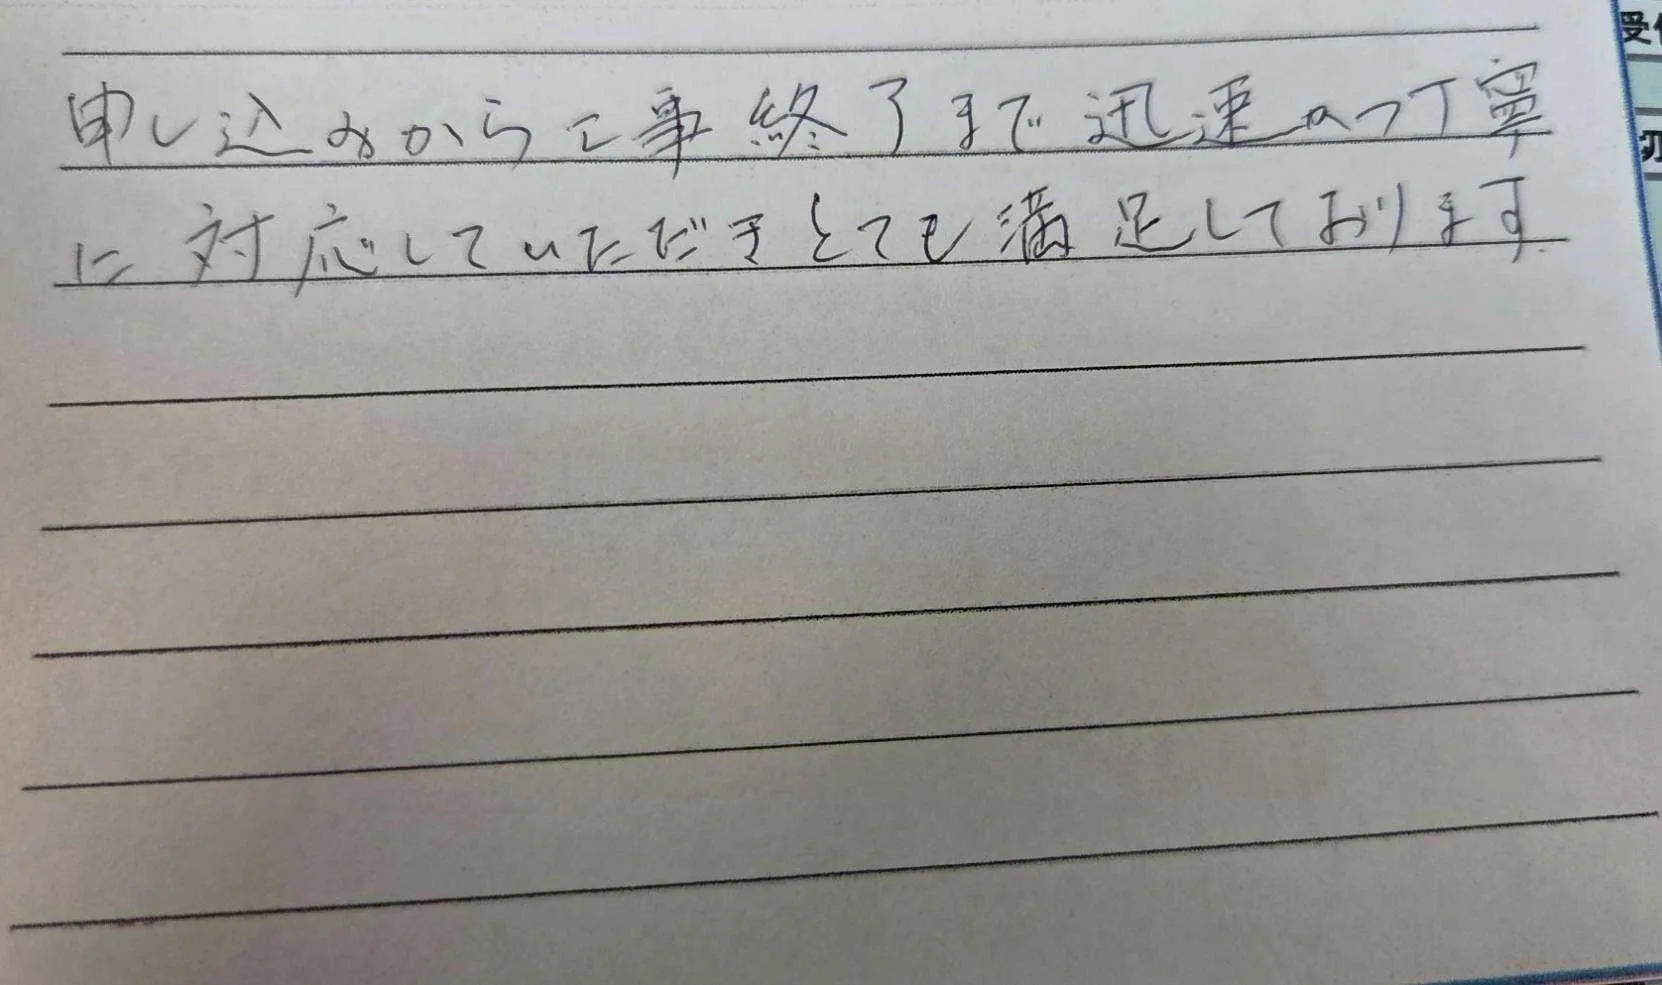 申し込みから工事終了まで迅速かつ丁寧
に対応していただきとても満足しております
受